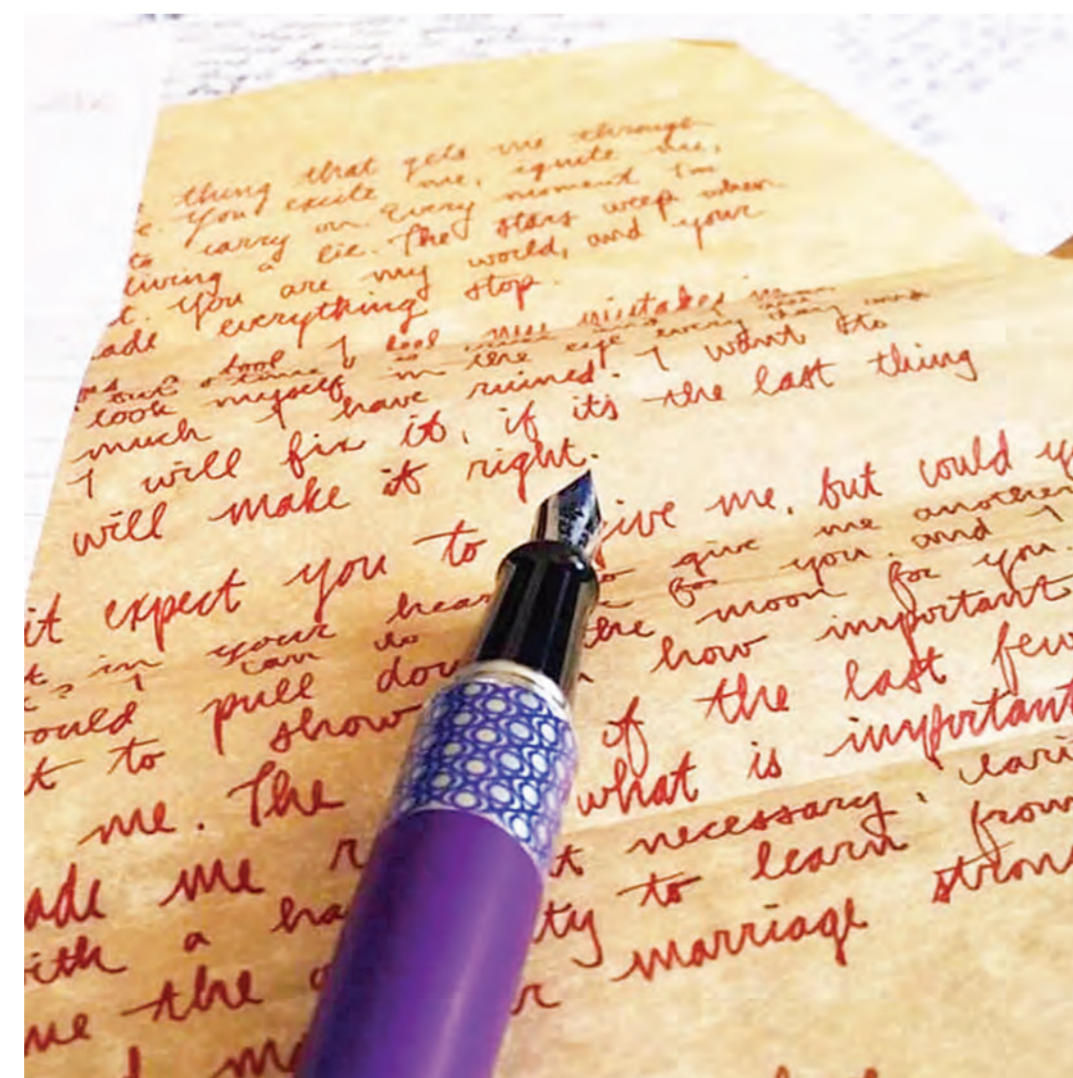 thing that gets me through
e. You excite me, ignite me,
to carry on. Every moment I'm
living a lie. The stars weep when
t. You are my world, and your
ade everything stop.
I look mistakes
look myself in the eye every
much I have ruined. I want to
I will fix it, if it's the last thing
will make it right.
it expect you to give me, but could y
t in your hear to give me another
I can do for you. and I
ould pull dow the moon for you.
t to show how important
me. The if the last few
ade me r what is important
ith a ha t necessary,
me the o ty to learn from
r marriage stron